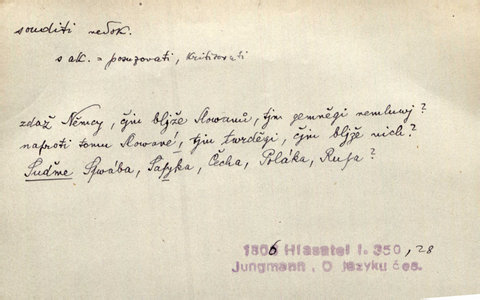 souditi nedok.
s ak. = posuzovati, kritisovati
zdaž Němcy, čjm bljže Slowanů, tjm gemněgi nemluwj?
naproti tomu Slowané, tjm twrděgi, čjm bljže nich?
Suďme Šwába, Sasyka, Čecha, Poláka, Rusa?
1806 Hlasatel I. 350, 28
Jungmann, O jazyku čes.